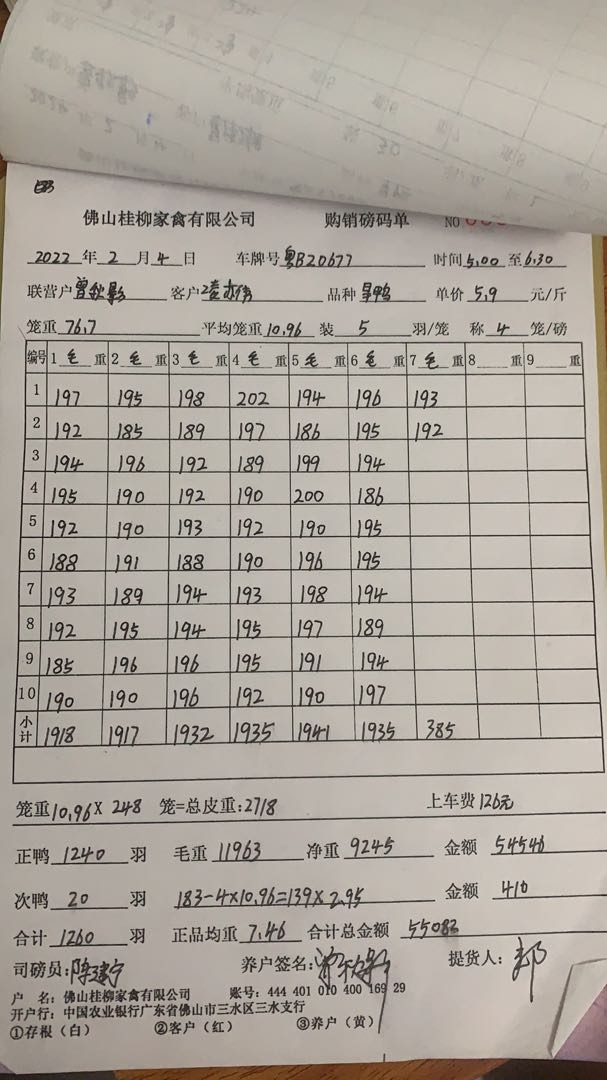 佛山桂柳家禽有限公司 购销磅码单 NO
2022 年 2 月 4 日 车牌号 粤B20677 时间 5.00 至 6.30
联营户 曾秋影 客户 品种 单价 5.9 元/斤
笼重 76.7 平均笼重 10.96 装 5 羽/笼 称 4 笼/磅
编号 1 毛 重 2 毛 重 3 毛 重 4 毛 重 5 毛 重 6 毛 重 7 毛 重 8 重 9 重
1 197 195 198 202 194 196 193
2 192 185 189 197 186 195 192
3 194 196 192 189 199 194
4 195 190 192 190 200 186
5 192 190 193 192 190 195
6 188 191 188 190 196 195
7 193 189 194 193 198 194
8 192 195 194 195 197 189
9 185 196 196 195 191 194
10 190 190 196 192 190 197
小计 1918 1917 1932 1935 1941 1935 385
笼重 10.96 X 248 笼=总皮重: 2718 上车费 126元
正鸭 1240 羽 毛重 11963 净重 9245 金额 54546
次鸭 20 羽 183-4×10.96=139×2.95 金额 410
合计 1260 羽 正品均重 7.46 合计总金额 55083
司磅员: 陈建宁 养户签名: 曾秋影 提货人: 郭
户 名: 佛山桂柳家禽有限公司 账号: 444 401 010 400 169 29
开户行: 中国农业银行广东省佛山市三水区三水支行
①存根（白） ②客户（红） ③养户（黄）